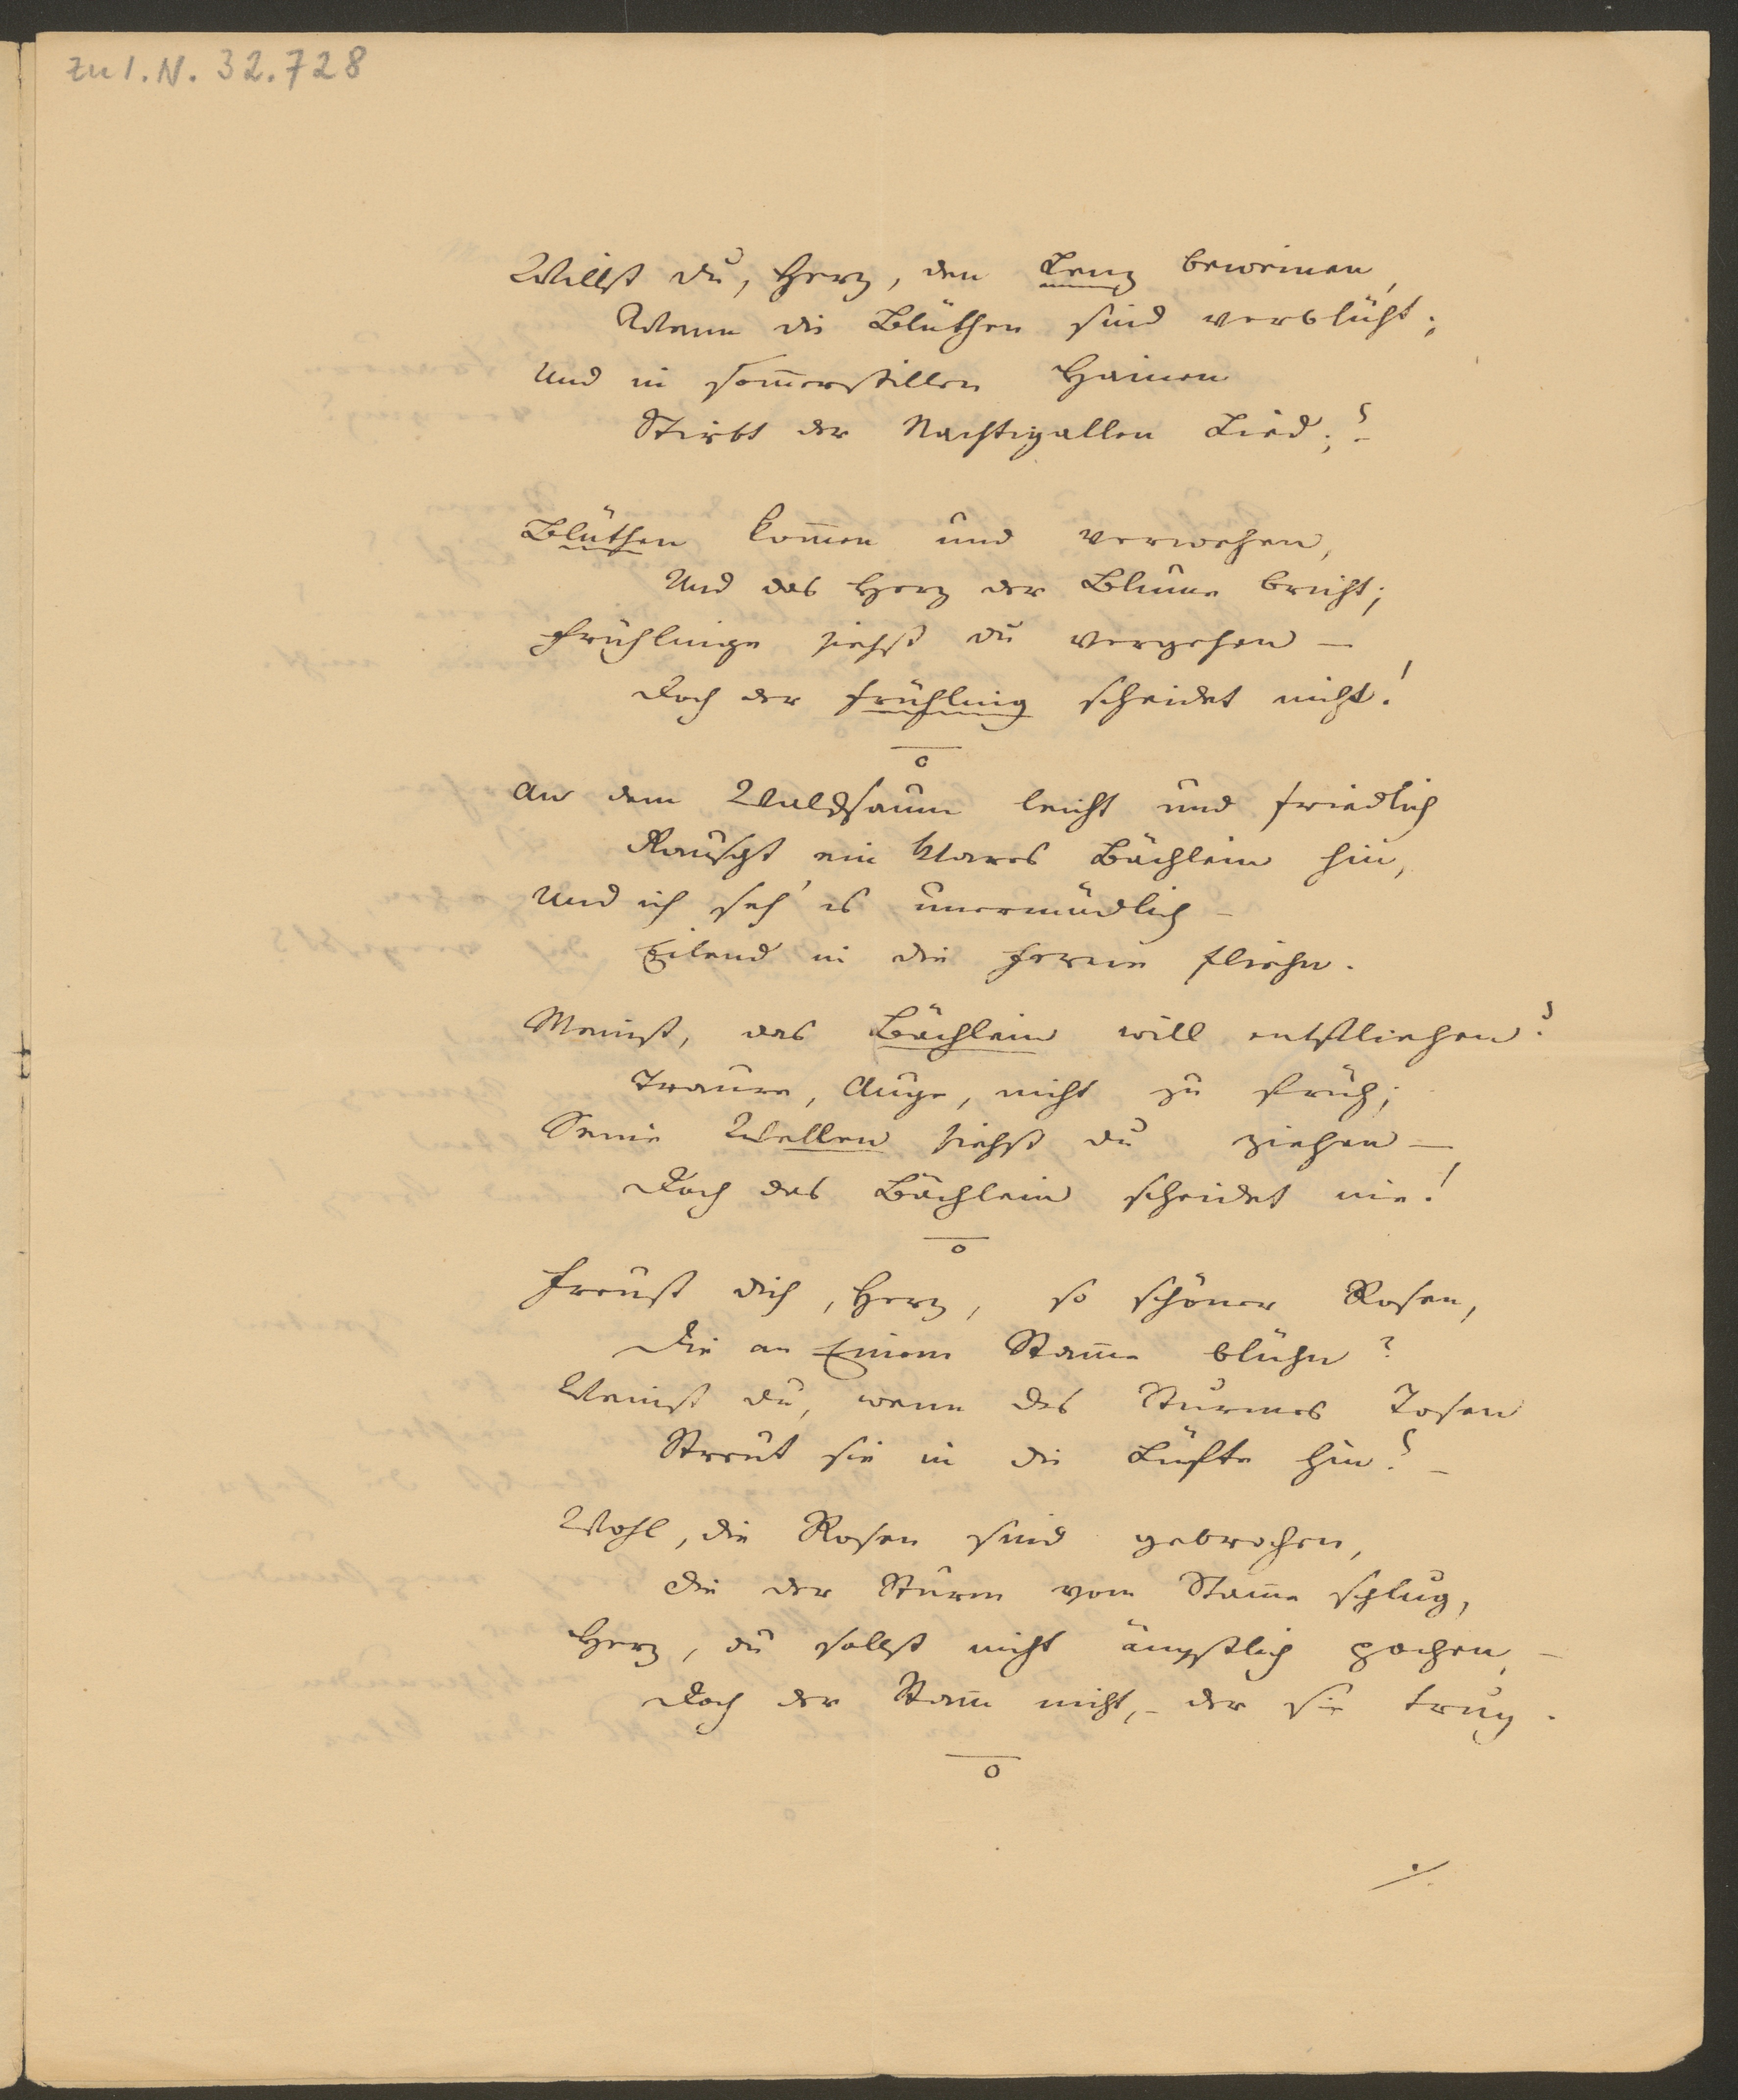 zu I.N. 32.728
Willst du, Herz, den Lenz beweinen,
Wenn die Blüthen sind verblüht;
Und in som̄erstillen Hainen
Stirbt der Nachtigallen Lied;? –
Blüthen kom̄en und verwehen,
Und das Herz der Blume bricht;
Frühlinge siehst du vergehen –
Doch der Frühling scheidet nicht!
o
An dem Waldsaum leicht und friedlich
Rauscht ein klares Bächlein hin,
Und ich seh' es unermüdlich –
Eilend in die Ferne fliehn.
Meinst, das Bächlein will entfliehen?
Traure, Auge, nicht zu früh;
Seine Wellen siehst du ziehen –
Doch das Bächlein scheidet nie!
o
Freust dich, Herz, so schöner Rosen,
Die an Einem Stam̄e blühn?
Weinst du, wenn des Sturmes Tosen
Streut sie in die Lüfte hin? –
Wohl, die Rosen sind gebrochen,
Die der Sturm vom Stam̄e schlug,
Herz, du sollst nicht ängstlich pochen, –
Doch der Stam̄ nicht, – der sie trug.
o
./.